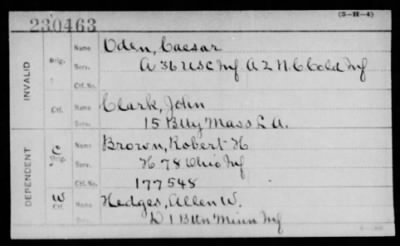 (5-H-4)
230463
INVALID
Orig. Name Oden, Caesar
Serv. A 36 U S C Inf A 2 N C Cold Inf
Ctf. No.
Ctf. Name Clark, John
Serv. 15 Bty Mass L A.
DEPENDENT
C Orig. Name Brown, Robert H
Serv. H 78 Ohio Inf
Ctf. No. 177548
W Ctf. Name Hedges, Allen W.
Serv. D 1 Btn Minn Inf